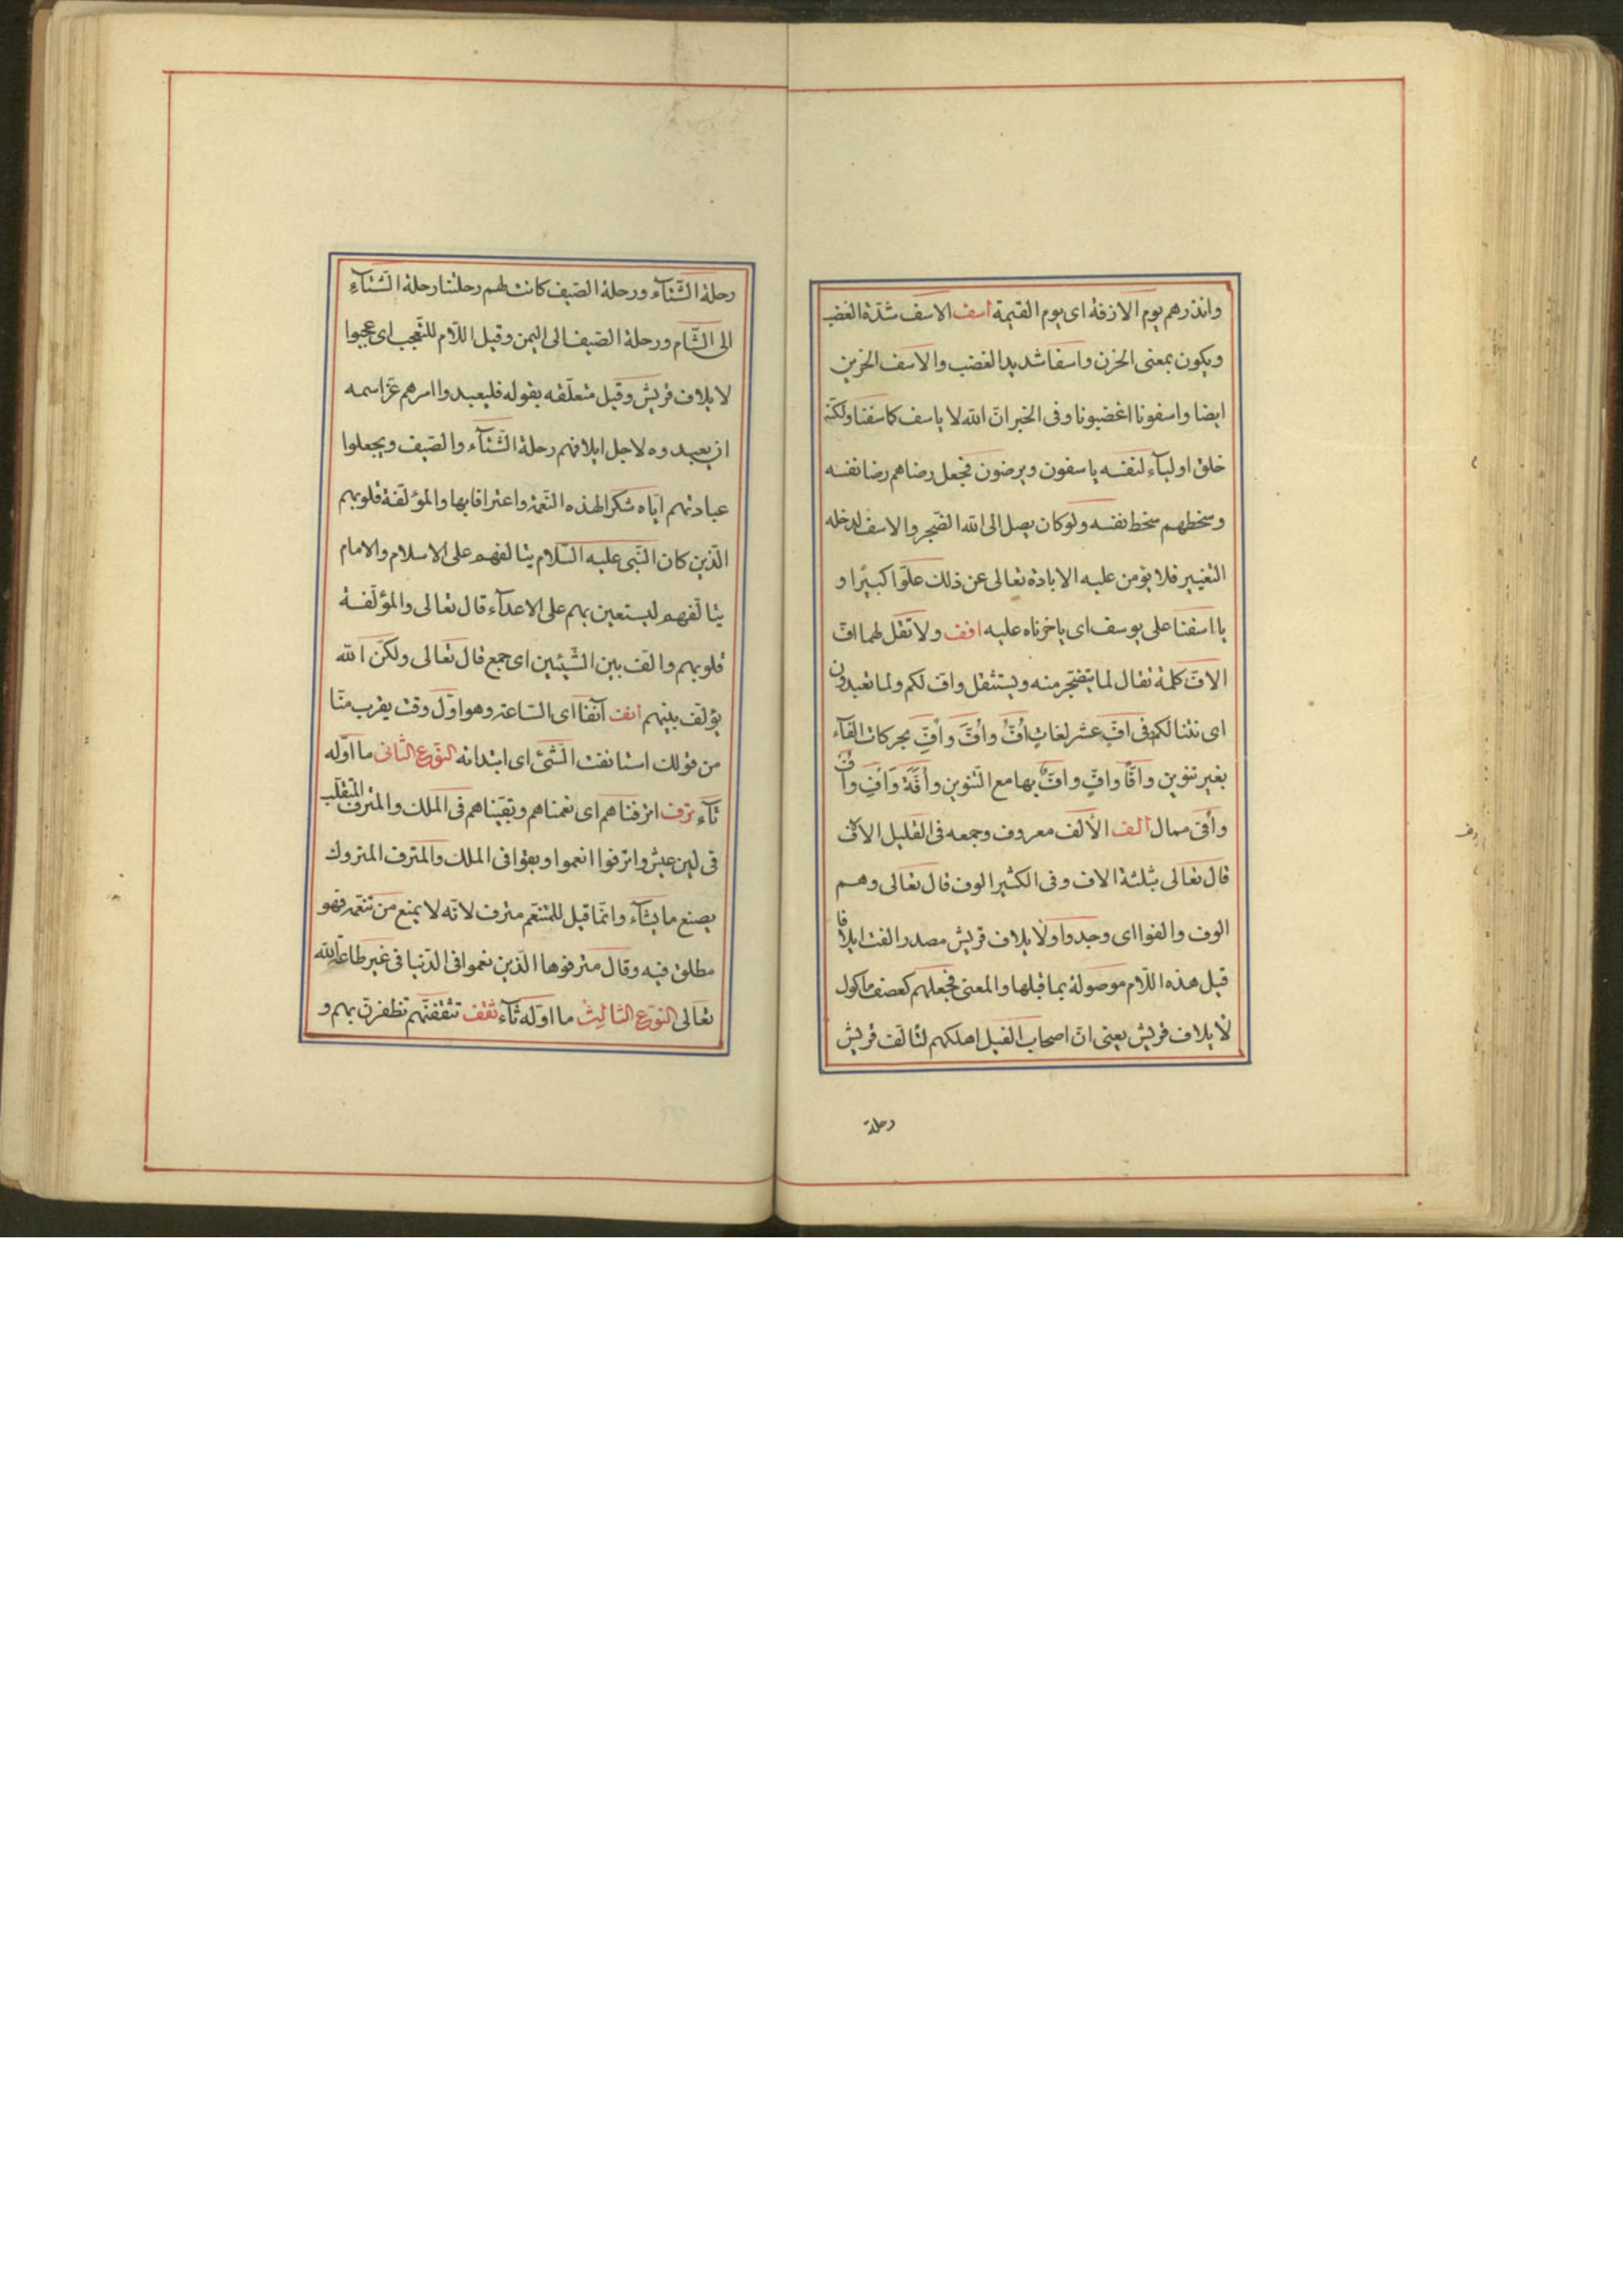 وانذرهم يوم الازفة اى يوم القيمة اسف الاسف شدّة الغضب
ويكون بمعنى الحزن واسفا شديد الغضب والاسف الحزين
ايضا واسفونا اغضبونا وفى الخبر انّ الله لا ياسف كاسفنا ولكنّه
خلق اولياء لنفسه ياسفون ويرضون فجعل رضاهم رضا نفسه
وسخطهم سخط نفسه ولو كان يصل الى الله الضّجر والاسف لدخله
التغيير فلا يؤمن عليه الابادة تعالى عن ذلك علوّا كبيرًا و
يا اسفنا على يوسف اى يا حزناه عليه افف ولا تقل لهما افّ
الافّ كلمة تقال لما يتضجّر منه ويستثقل وافّ لكم ولما تعبدون
اى نتنا لكم فى افّ عشر لغات أفُّ وأفَّ وأفِّ بحركات الفآء
بغير تنوين وافًّا وافٍّ وافٌّ بها مع التّنوين وأفّة وأفِ وأفْ
وأفّى ممال الف الألف معروف وجمعه فى القليل الاف
قال تعالى بثلثة الاف وفى الكثير الوف قال تعالى وهم
الوف والفوا اى وجدوا ولايلاف قريش مصدر الفت ايلافا
قيل هذه اللّام موصولة بما قبلها والمعنى فجعلهم كعصف ماكول
لايلاف قريش يعنى انّ اصحاب الفيل اهلكهم لتالف قريش
رحلة
رحلة الشّتآء ورحلة الصّيف كانت لهم رحلتنا رحلة الشّتآء
الى الشّام ورحلة الصّيف الى اليمن وقيل اللّام للتّعجب اى عجبوا
لايلاف قريش وقيل متعلّقه بقوله فليعبدوا امرهم عزّ اسمه
ان يعبدوه لاجل ايلافهم رحلة الشّتآء والصّيف ويجعلوا
عبادتهم ايّاه شكرا لهذه النّعمة واعترافا بها والمؤلّفة قلوبهم
الّذين كان النّبى عليه السّلام يتالفهم على الاسلام والامام
يتالّفهم ليستعين بهم على الاعدآء قال تعالى والمؤلّفة
قلوبهم والّف بين الشّيئين اى جمع قال تعالى ولكنّ الله
يؤلّف بينهم انف آنفا اى السّاعة وهو اوّل وقت يقرب منّا
من قولك استانفت الشّئ اى ابتداته النّوع الثّانى ما اوّله
تآء ترف اترفناهم اى نعمناهم وبقيّناهم فى الملك والمترف المتقلّب
فى لين عيش واترفوا انعموا وبقوا فى الملك والمترف المتروك
يصنع ما يشآء وانّما قيل للمتنعّم مترف لانّه لا يمنع من تنعّمه فهو
مطلق فيه وقال مترفوها الّذين نعموا فى الدّنيا فى غير طاعة الله
تعالى النّوع الثّالث ما اوّله ثآء ثقف تثقفنّهم تظفرنّ بهم و